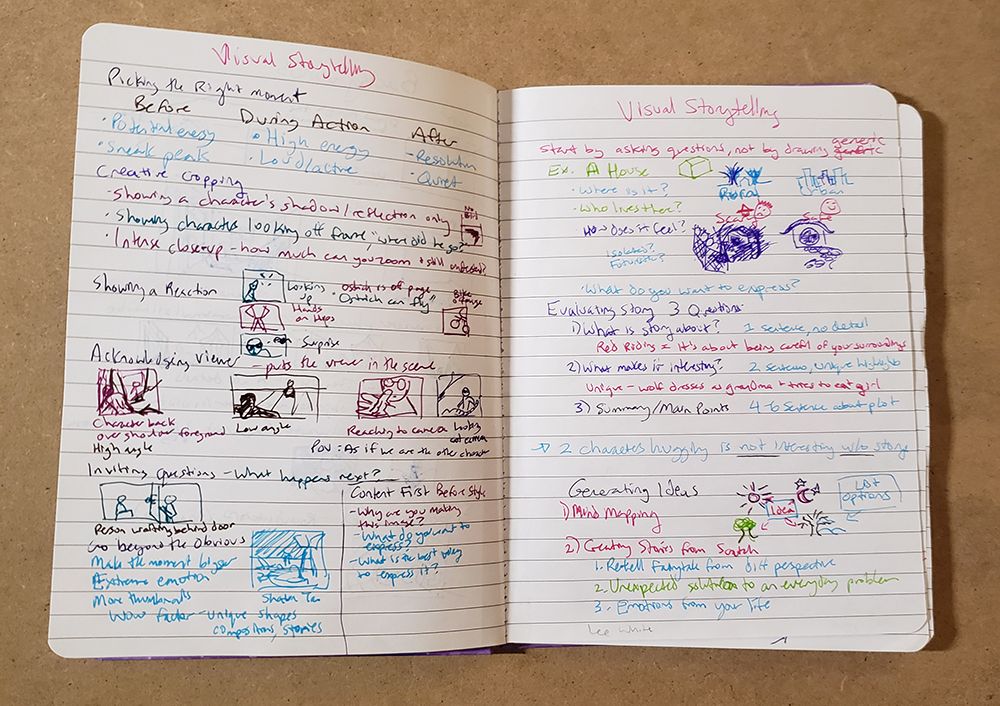 Visual Storytelling
Picking the Right moment
Before During Action After
• Potential energy • High energy - Resolution
• Sneak peak • Loud/active • Quiet
Creative cropping
- Showing a character's shadow/reflection only
• Showing character looking off frame, "where did he go?"
• Intense close-up - how much can you zoom + still understand?
Showing a Reaction
Looking up
• Ostrich is off page
• "Ostrich can fly"
Bike off page
Hands on Hips
Surprise
Acknowledging viewer - puts the viewer in the scene
Character back
over shoulder foreground
High angle
Low angle
Reaching to camera
Looking at camera
POV: As if we are the other character
Inviting questions - What happens next?
Person waiting behind door
Go beyond the Obvious
Make the moment bigger
Extreme emotion
More thumbnails
Wow factor - unique shapes
compositions, stories
Shaun Tan
Content First Before Style
- Why are you making
this image?
- What do you want to
express?
- What is the best way
to express it?
Visual Storytelling
Start by asking questions, not by drawing generic
Ex. A House
• Where is it?
Rural Urban
• Who lives there?
Scary Safe
How Does it feel?
isolated?
Futuristic?
• What do you want to express?
Evaluating Story 3 Questions
1) What is story about? 1 sentence, no detail
Red Riding = It's about being careful of your surroundings
2) What makes it interesting? 2 sentences, unique highlights
Unique - wolf dresses as grandma + tries to eat girl
3) Summary/Main Points 4-6 Sentence about plot
2 characters hugging is not interesting w/o story
Generating Ideas
1) Mind Mapping
Idea
Lot options
2) Creating Stories from Scratch
1. Retell Fairytale from diff perspective
2. Unexpected solution to an everyday problem
3. Emotions from your life
Lee White